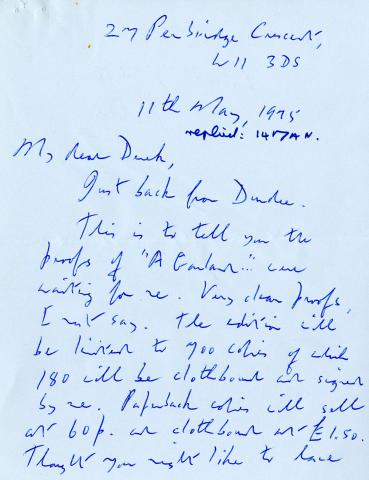 27 Pembridge Crescent,
W11 3DS
11th May, 1975
replied: 14
My dear Derek,
Just back from Dundee.
This is to tell you the
proofs of "A Garland..." were
waiting for me. Very clean proofs,
I must say. The edition will
be limited to 700 copies of which
180 will be clothbound and signed
by me. Paperback copies will sell
at 60p. and clothbound at £1.50.
Thought you might like to have